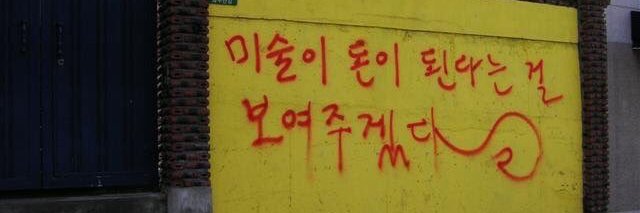 미술이 돈이 된다는 걸
보여주겠다